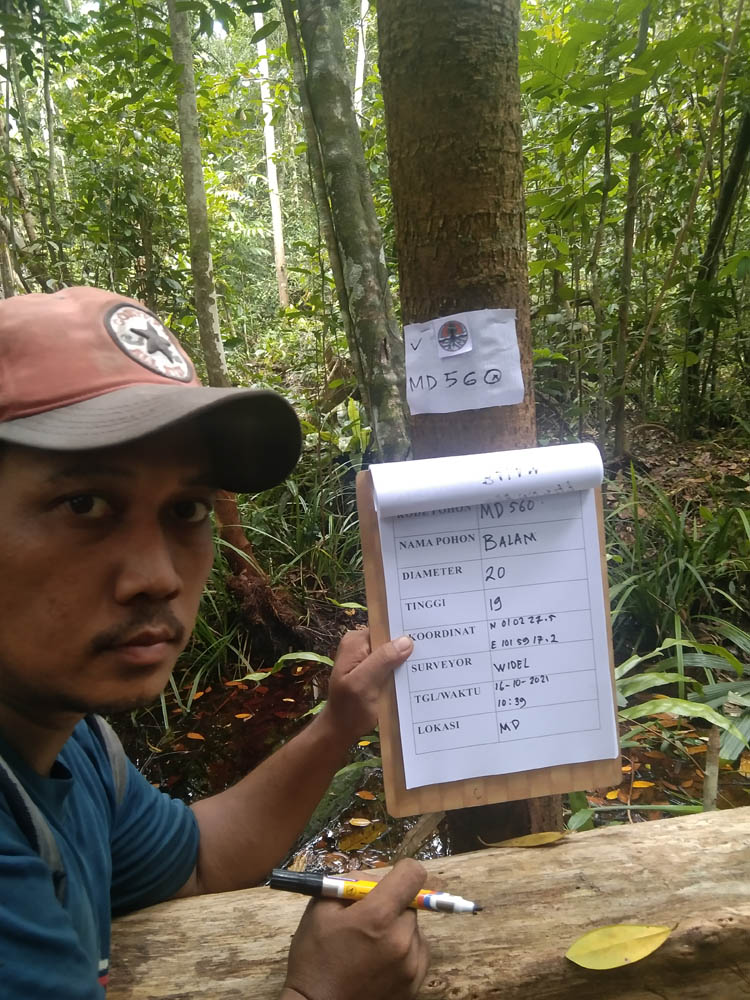 ✓
MD560
KODE POHON MD 560
NAMA POHON BALAM
DIAMETER 20
TINGGI 19
KOORDINAT N 01 02 27.5
E 101 59 17.2
SURVEYOR WIDEL
TGL/WAKTU 16-10-2021
10:39
LOKASI MD